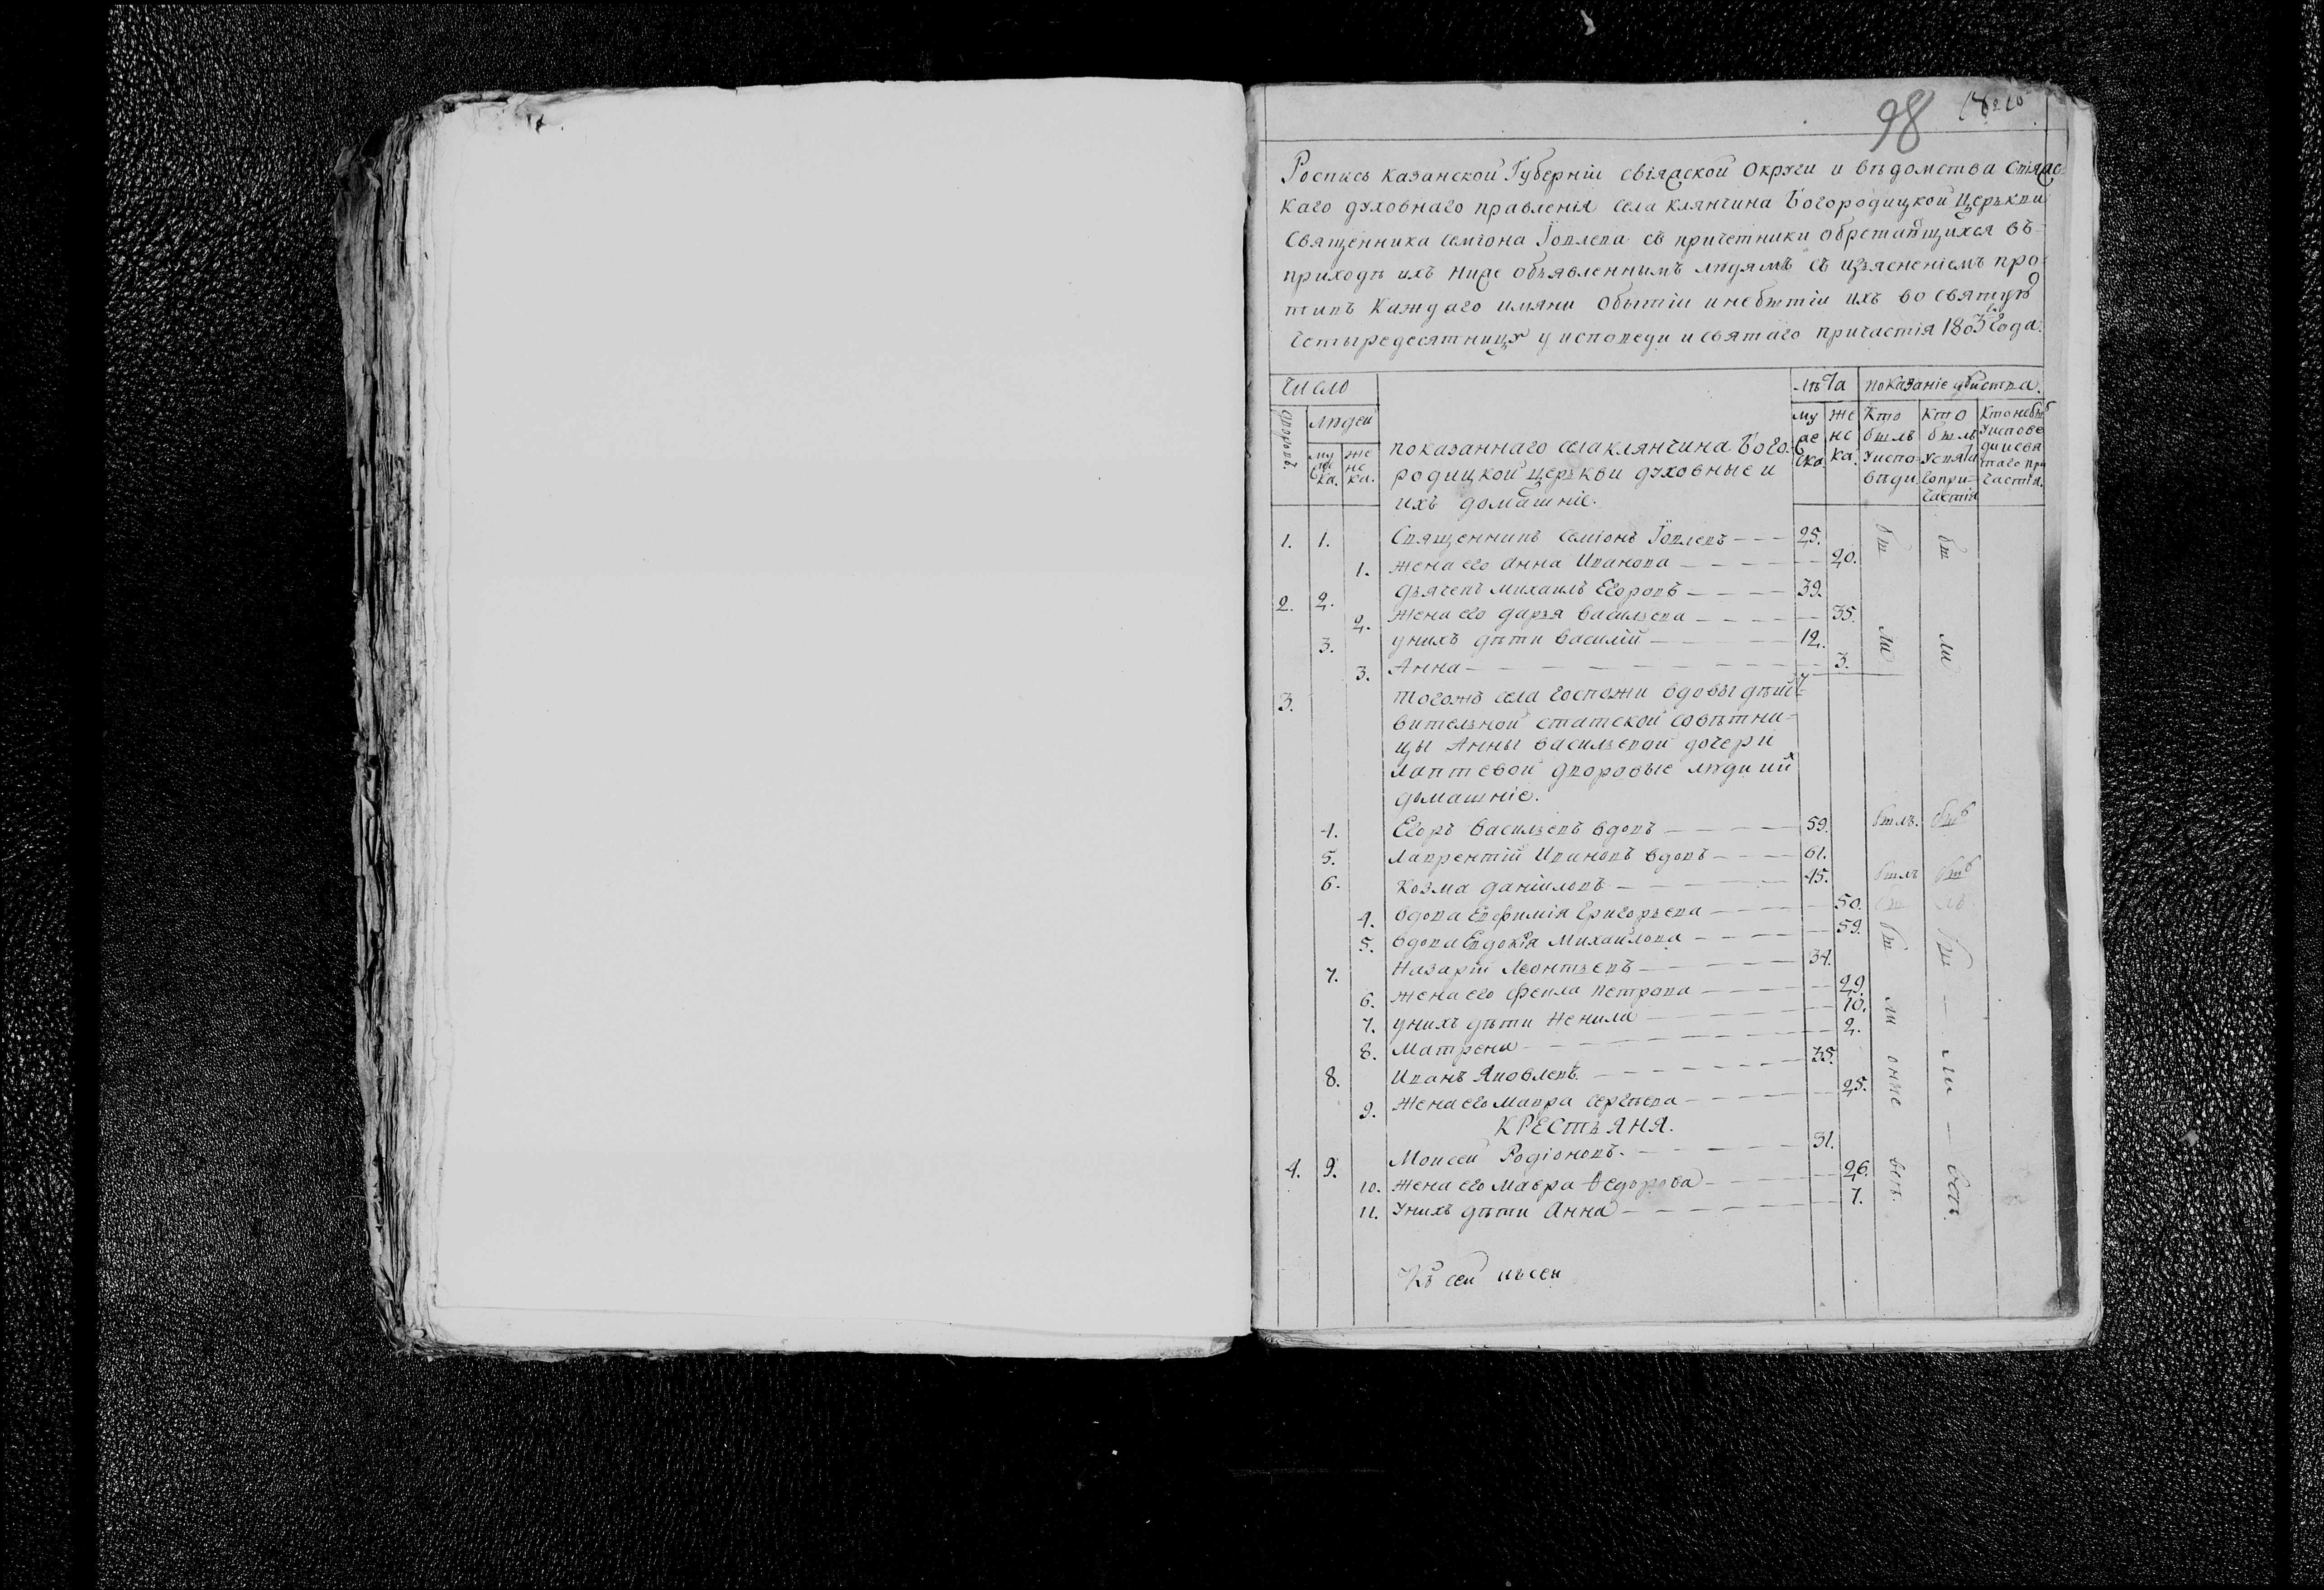 98
Роспись казанской Губерніи свіяжской Округи и вѣдомства свіяжс-
каго духовнаго правленія села клянчина Богородицкой Церькви
Священника семіона Іовлева съ причетники обретающихся въ
приходѣ ихъ ниже объявленнымъ людямъ съ изъясненіемъ про-
тивъ каждаго имяни о бытіи и небытіи ихъ во святую
четыредесятницу у исповеди и святаго причастія 1803 го года.
число лѣта показаніе убиства.
дворовъ. людей мужеска. женска. мужеска женска. кто былъ у исповѣди кто былъ у святаго причастія кто небылъ у исповеди и святаго причастія.
показаннаго села клянчина Бого-
родицкой церькви духовные и
ихъ домашніе.
1. 1. Священникъ семіонъ Іовлевъ 25. бы бы
1. жена его анна Иванова 20.
2. 2. дьячекъ михаилъ Егоровъ 39.
2. жена его дарья васильева 35.
3. у нихъ дѣти василій 12. ли ли
3. Анна 3.
3. тогожъ села госпожи вдовы дѣйс-
вительной статской совѣтни-
цы Анны васильевой дочери
лаптевой дворовые люди и ихъ
домашніе.
4. Егоръ васильевъ вдовъ 59. былъ. былъ
5. лаврентій Ивановъ вдовъ 61.
6. козма даніиловъ 45. былъ былъ
4. вдова Евфимія григорьева 50.
5. вдова Евдокія михайлова 59. бы бы
7. Назарій леонтьевъ 34.
6. жена его фекла петрова 29.
7. у нихъ дѣти Ненила 10. ли
8. матрена 2.
8. Иванъ Яковлевъ. 35. ли
9. жена его мавра сергѣева 25. оніе
КРЕСТЬЯНЯ.
4. 9. Моисей Родіоновъ. 31.
10. жена его мавра Ѳедорова 26. всѣ. всѣ.
11. У нихъ дѣти Анна 7.
Къ сей